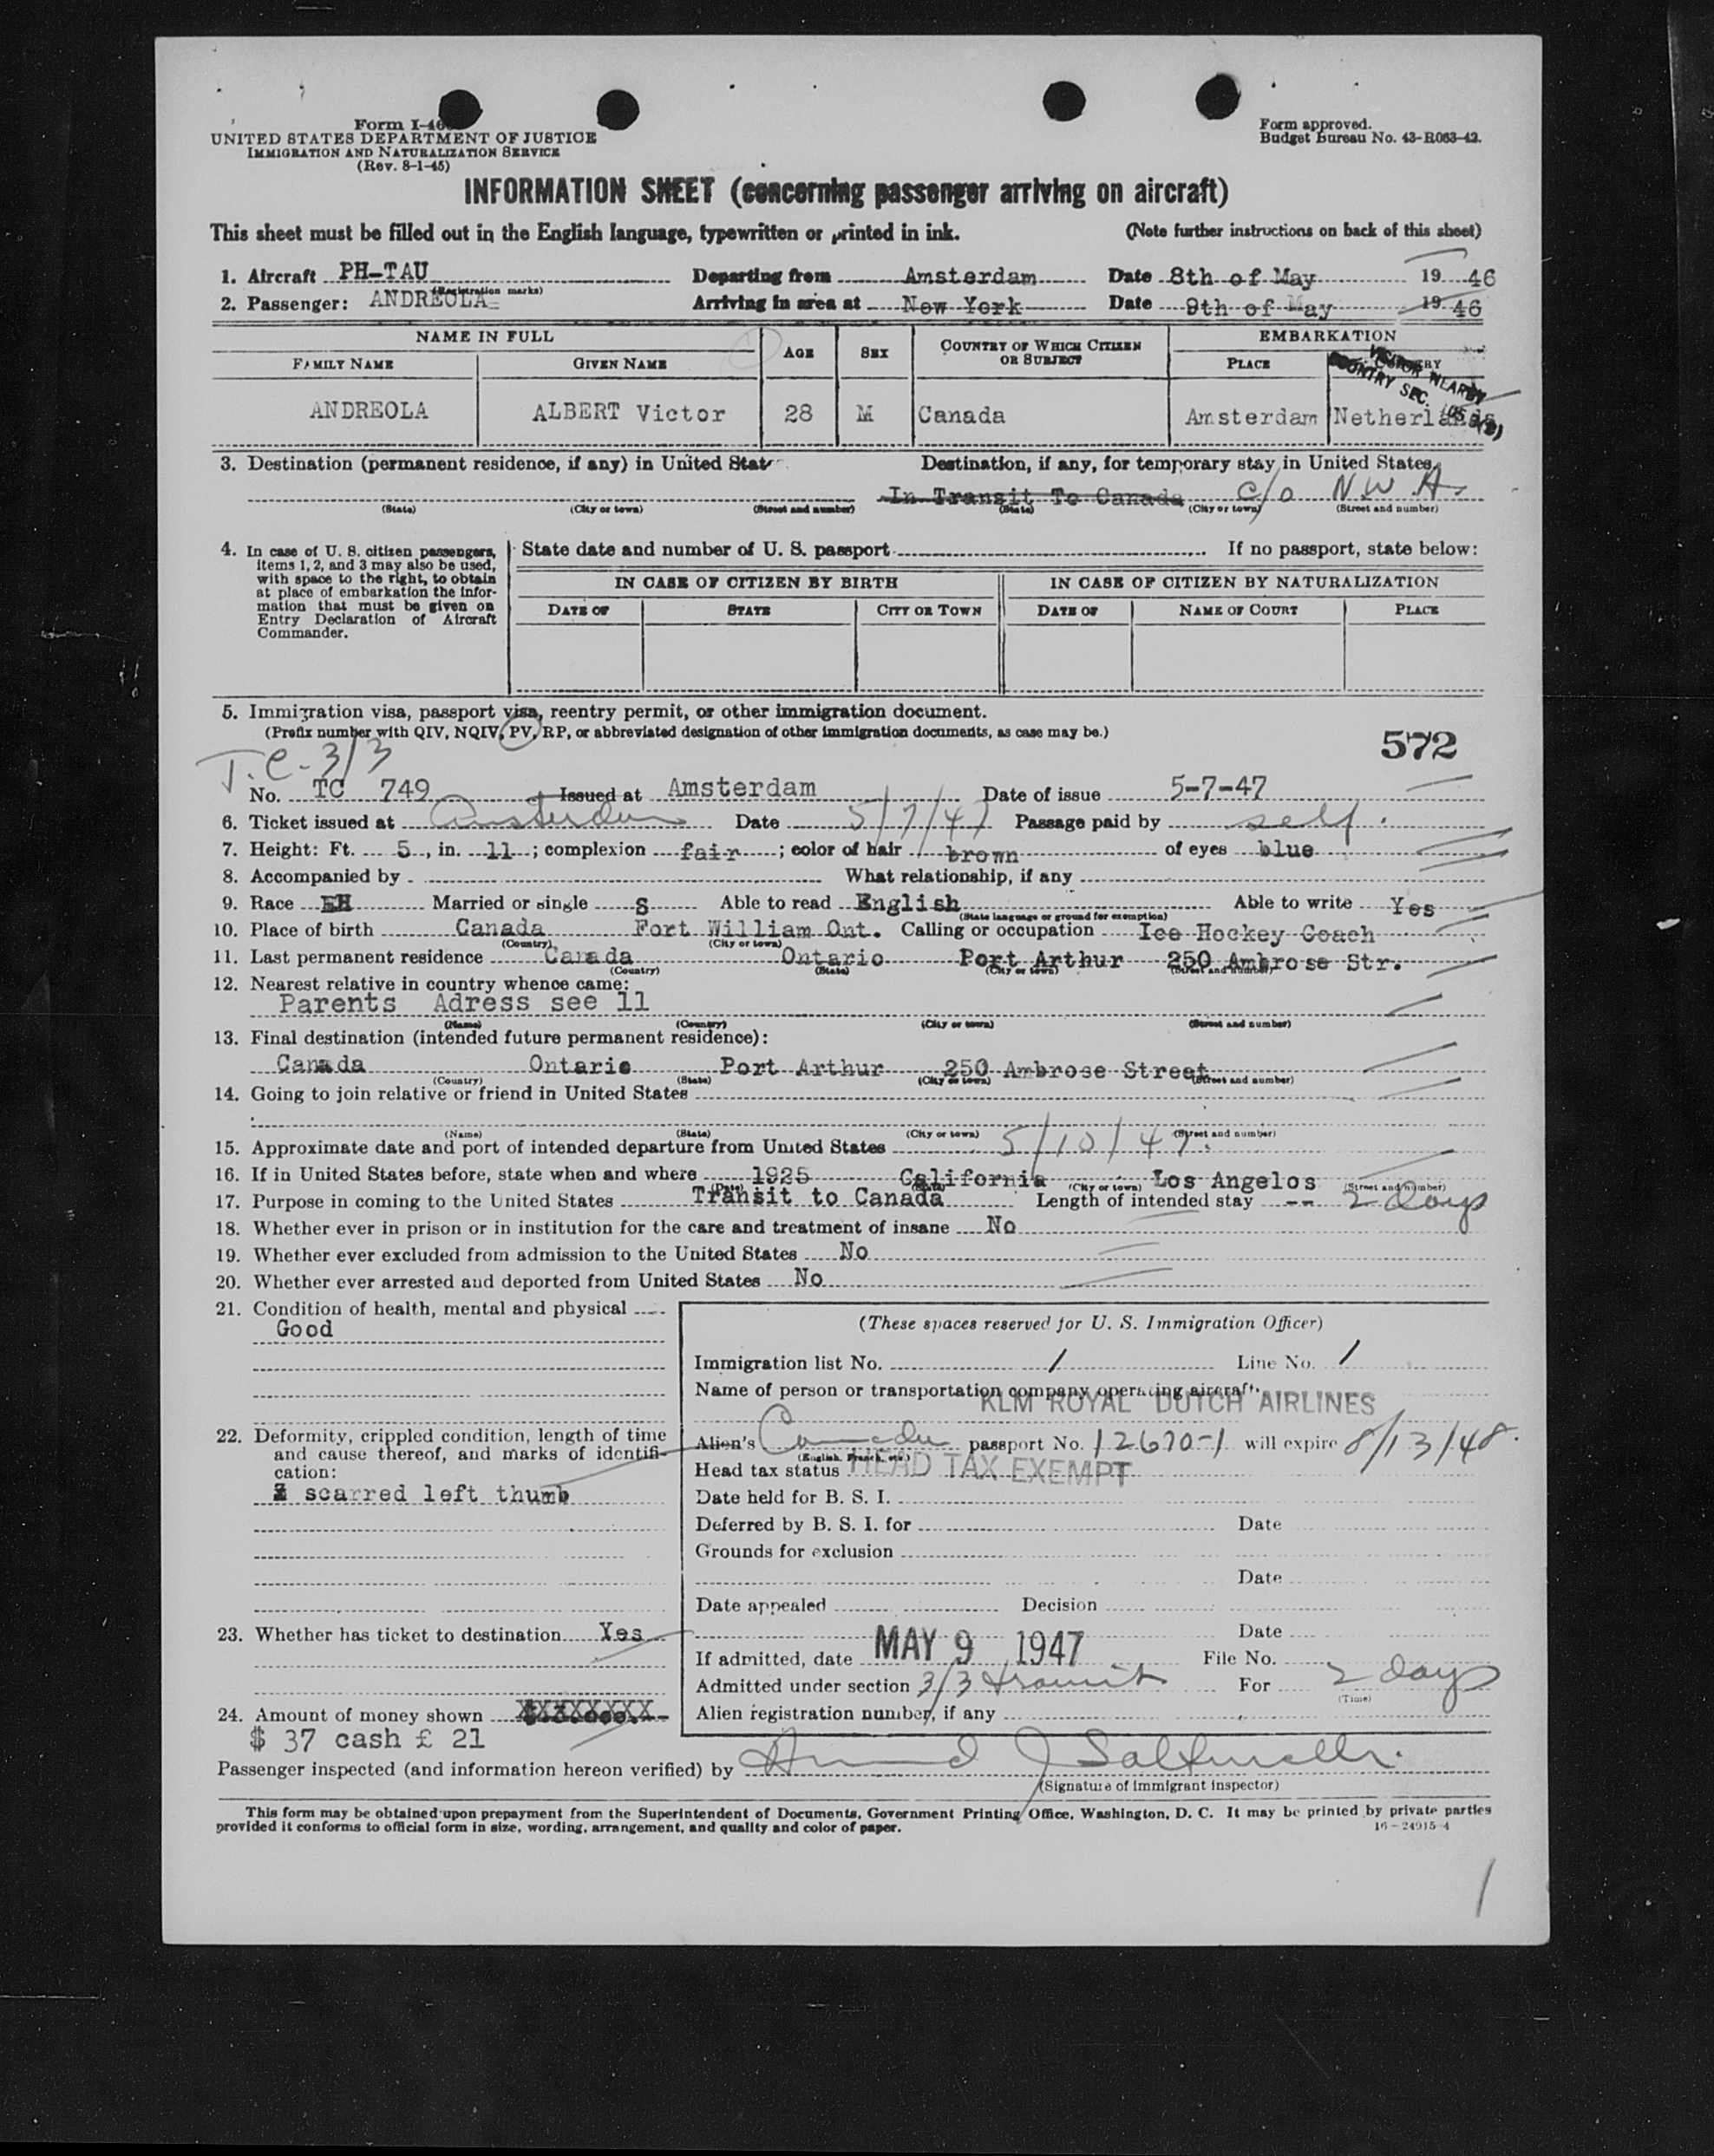 Form I-46
UNITED STATES DEPARTMENT OF JUSTICE
IMMIGRATION AND NATURALIZATION SERVICE
(Rev. 8-1-45)
Form approved.
Budget Bureau No. 43-R063-42.
INFORMATION SHEET (concerning passenger arriving on aircraft)
This sheet must be filled out in the English language, typewritten or printed in ink. (Note further instructions on back of this sheet)
1. Aircraft PH-TAU Departing from Amsterdam Date 8th of May 19 46
(Registration marks)
2. Passenger: ANDREOLA Arriving in area at New York Date 9th of May 19 46
NAME IN FULL AGE SEX COUNTRY OF WHICH CITIZEN OR SUBJECT EMBARKATION
FAMILY NAME GIVEN NAME PLACE COUNTRY
VISITOR NEARBY
COUNTRY SEC.
ANDREOLA ALBERT Victor 28 M Canada Amsterdam Netherlands
3. Destination (permanent residence, if any) in United States Destination, if any, for temporary stay in United States
In Transit To Canada c/o N.W.A.
(State) (City or town) (Street and number) (State) (City or town) (Street and number)
4. In case of U. S. citizen passengers, items 1, 2, and 3 may also be used, with space to the right, to obtain at place of embarkation the information that must be given on Entry Declaration of Aircraft Commander.
State date and number of U. S. passport If no passport, state below:
IN CASE OF CITIZEN BY BIRTH IN CASE OF CITIZEN BY NATURALIZATION
DATE OF STATE CITY OR TOWN DATE OF NAME OF COURT PLACE
5. Immigration visa, passport visa, reentry permit, or other immigration document.
(Prefix number with QIV, NQIV, PV, RP, or abbreviated designation of other immigration documents, as case may be.)
572
T.C. 3/3
No. TC 749 Issued at Amsterdam Date of issue 5-7-47
6. Ticket issued at Amsterdam Date 5/7/47 Passage paid by self.
7. Height: Ft. 5, in. 11; complexion fair; color of hair brown of eyes blue
8. Accompanied by What relationship, if any
9. Race EH Married or single S Able to read English Able to write Yes
(State language or ground for exemption)
10. Place of birth Canada Fort William Ont. Calling or occupation Ice Hockey Coach
(Country) (City or town)
11. Last permanent residence Canada Ontario Port Arthur 250 Ambrose Str.
(Country) (State) (City or town) (Street and number)
12. Nearest relative in country whence came:
Parents Adress see 11
(Name) (Country) (City or town) (Street and number)
13. Final destination (intended future permanent residence):
Canada Ontario Port Arthur 250 Ambrose Street
(Country) (State) (City or town) (Street and number)
14. Going to join relative or friend in United States
(Name) (State) (City or town) (Street and number)
15. Approximate date and port of intended departure from United States 5/10/47.
16. If in United States before, state when and where 1925 California Los Angelos
(Date) (State) (City or town) (Street and number)
17. Purpose in coming to the United States Transit to Canada Length of intended stay -- 2 days
18. Whether ever in prison or in institution for the care and treatment of insane No
19. Whether ever excluded from admission to the United States No
20. Whether ever arrested and deported from United States No
21. Condition of health, mental and physical
Good
22. Deformity, crippled condition, length of time and cause thereof, and marks of identification:
scarred left thumb
23. Whether has ticket to destination Yes
24. Amount of money shown XXXXXXXX
$ 37 cash £ 21
(These spaces reserved for U. S. Immigration Officer)
Immigration list No. 1 Line No. 1
Name of person or transportation company operating aircraft
KLM ROYAL DUTCH AIRLINES
Alien's Canada passport No. 12670-1 will expire 8/13/48.
(English, French, etc.)
Head tax status HEAD TAX EXEMPT
Date held for B. S. I.
Deferred by B. S. I. for Date
Grounds for exclusion
Date
Date appealed Decision
Date
If admitted, date MAY 9 1947 File No.
Admitted under section 3/3 transit For 2 days
(Time)
Alien registration number, if any
Passenger inspected (and information hereon verified) by
(Signature of immigrant inspector)
This form may be obtained upon prepayment from the Superintendent of Documents, Government Printing Office, Washington, D. C. It may be printed by private parties
provided it conforms to official form in size, wording, arrangement, and quality and color of paper. 16-24915-4
1